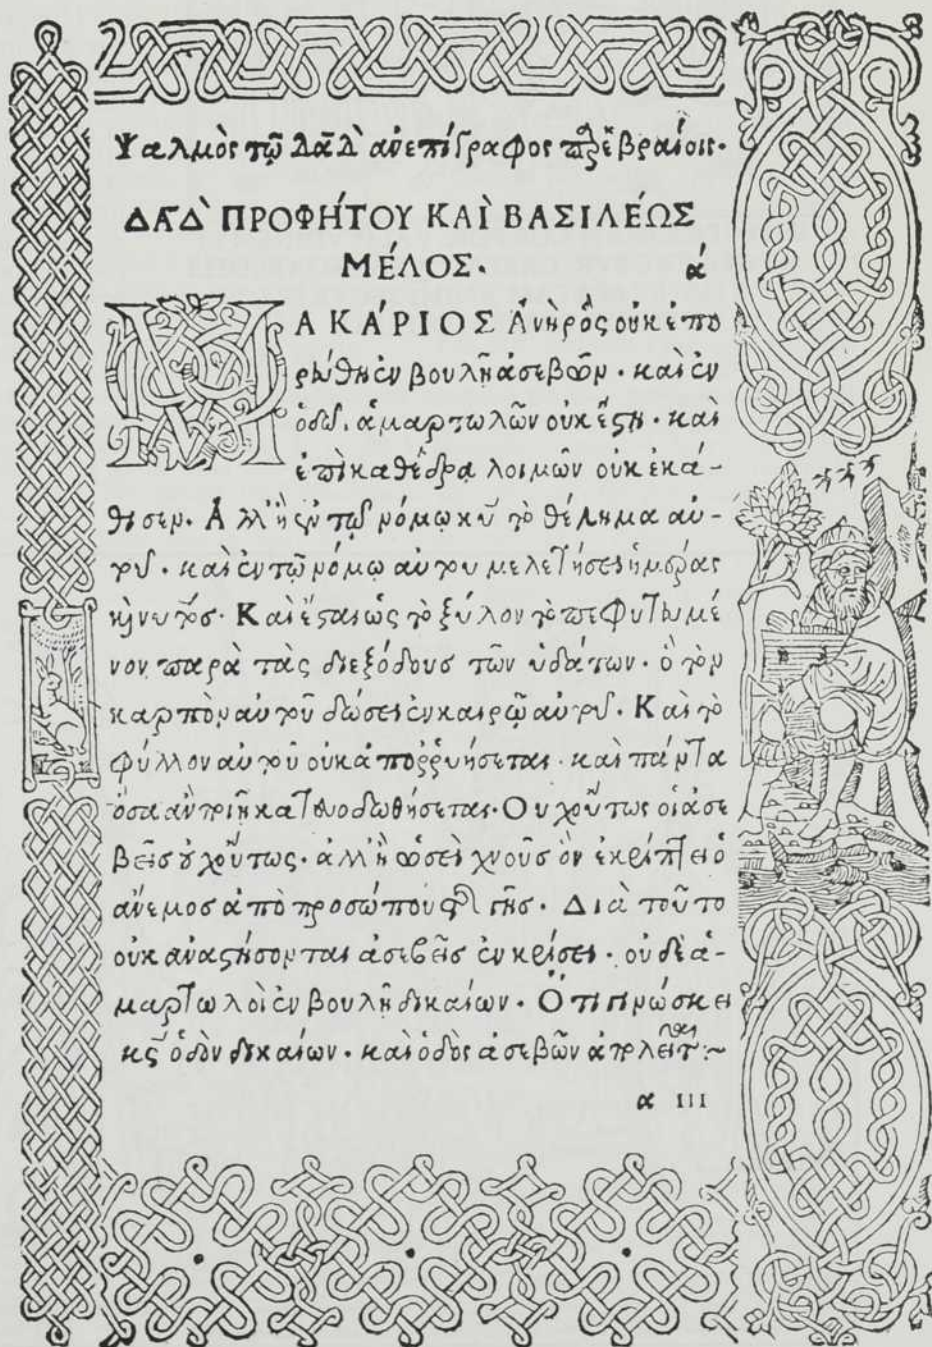 Ψαλμὸς τῷ Δᾱδ̀ ἀνεπίγραφος παρ' ἑβραίοις.
ΔΑ̅Δ̀ ΠΡΟΦΉΤΟΥ ΚΑῚ ΒΑΣΙΛΈΩΣ
ΜΈΛΟΣ. ά
ΜΑΚΆΡΙΟΣ Ἀνὴρ ὃς οὐκ ἐπο
ρεύθη ἐν βουλῇ ἀσεβῶν. καὶ ἐν
ὁδῷ ἁμαρτωλῶν οὐκ ἔστη. καὶ
ἐπὶ καθέδρᾳ λοιμῶν οὐκ ἐκά-
θισεν. Ἀλλ' ἢ ἐν τῷ νόμῳ κυ̅ τὸ θέλημα αὐ-
τοῦ. καὶ ἐν τῷ νόμῳ αὐτοῦ μελετήσει ἡμέρας
καὶ νυκτός. Καὶ ἔσται ὡς τὸ ξύλον τὸ πεφυτευμέ
νον παρὰ τὰς διεξόδους τῶν ὑδάτων. ὁ τὸν
καρπὸν αὐτοῦ δώσει ἐν καιρῷ αὐτοῦ. Καὶ τὸ
φύλλον αὐτοῦ οὐκ ἀπορρυήσεται. καὶ πάντα
ὅσα ἂν ποιῇ κατευοδωθήσεται. Οὐχ οὕτως οἱ ἀσε
βεῖς οὐχ οὕτως. ἀλλ' ἢ ὡσεὶ χνοῦς ὃν ἐκρίπτει ὁ
ἄνεμος ἀπὸ προσώπου τῆς γῆς. Διὰ τοῦτο
οὐκ ἀναστήσονται ἀσεβεῖς ἐν κρίσει. οὐδὲ ἁ-
μαρτωλοὶ ἐν βουλῇ δικαίων. Ὅτι γινώσκει
κς̅ ὁδὸν δικαίων. καὶ ὁδὸς ἀσεβῶν ἀπολεῖται:~
α III